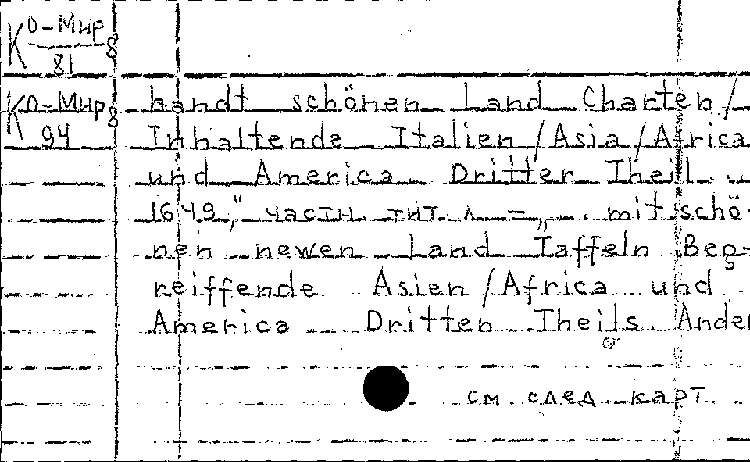 К О-Мир 8
81
К О-Мир 8
94
handt schönen Land Charten/
Inhaltende Italien/Asia/Africa
und America Dritter Theil ...
1649," части тит л =„ mit schö-
nen newen Land Taffeln Beg-
reiffende Asien/Africa und
America Dritten Theils Ander
см. след карт